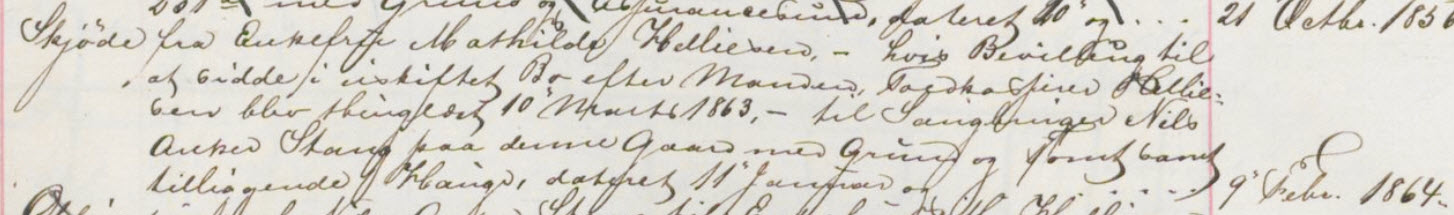 med Grund og Assurancesum, dateret 10" og . . . 21 Octbr. 185
Skjöde fra Enkefru Mathilde Helliesen, – hvis Bevilling til
at sidde i uskiftet Bo efter Manden, Toldkasserer Hellie-
sen blev thinglæst 10" Marts 1863, – til Sangbringer Nils
Anker Stang paa denne Gaard med Grund og Tomt samt
tilliggende Hauge, dateret 11" Januar og . . . . . 9" Febr. 1864.